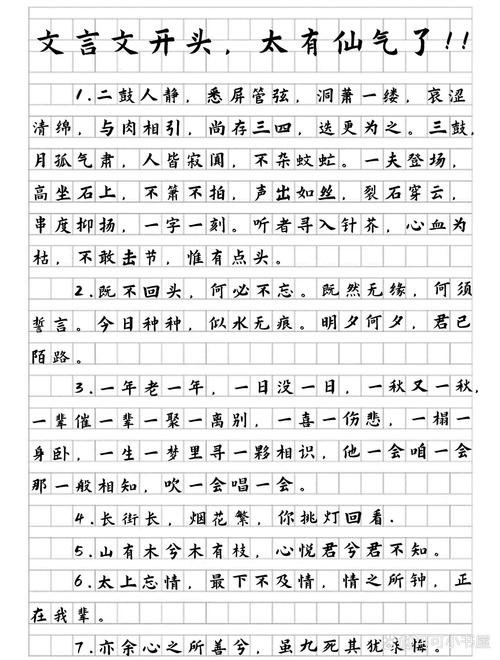 文言文开头，太有仙气了!!
1.二鼓人静，悉屏管弦，洞萧一缕，哀涩
清绵，与肉相引，尚存三四，迭更为之。三鼓，
月孤气肃，人皆寂阒，不杂蚊虻。一夫登场，
高坐石上，不箫不拍，声出如丝，裂石穿云，
串度抑扬，一字一刻。听者寻入针芥，心血为
枯，不敢击节，惟有点头。
2.既不回头，何必不忘。既然无缘，何须
誓言。今日种种，似水无痕。明夕何夕，君已
陌路。
3.一年老一年，一日没一日，一秋又一秋，
一辈催一辈一聚一离别，一喜一伤悲，一榻一
身卧，一生一梦里寻一夥相识，他一会咱一会
那一般相知，吹一会唱一会。
4.长街长，烟花繁，你挑灯回看.
5.山有木兮木有枝，心悦君兮君不知。
6.太上忘情，最下不及情，情之所钟，正
在我辈。
7.亦余心之所善兮，虽九死其犹未悔。
小书屋